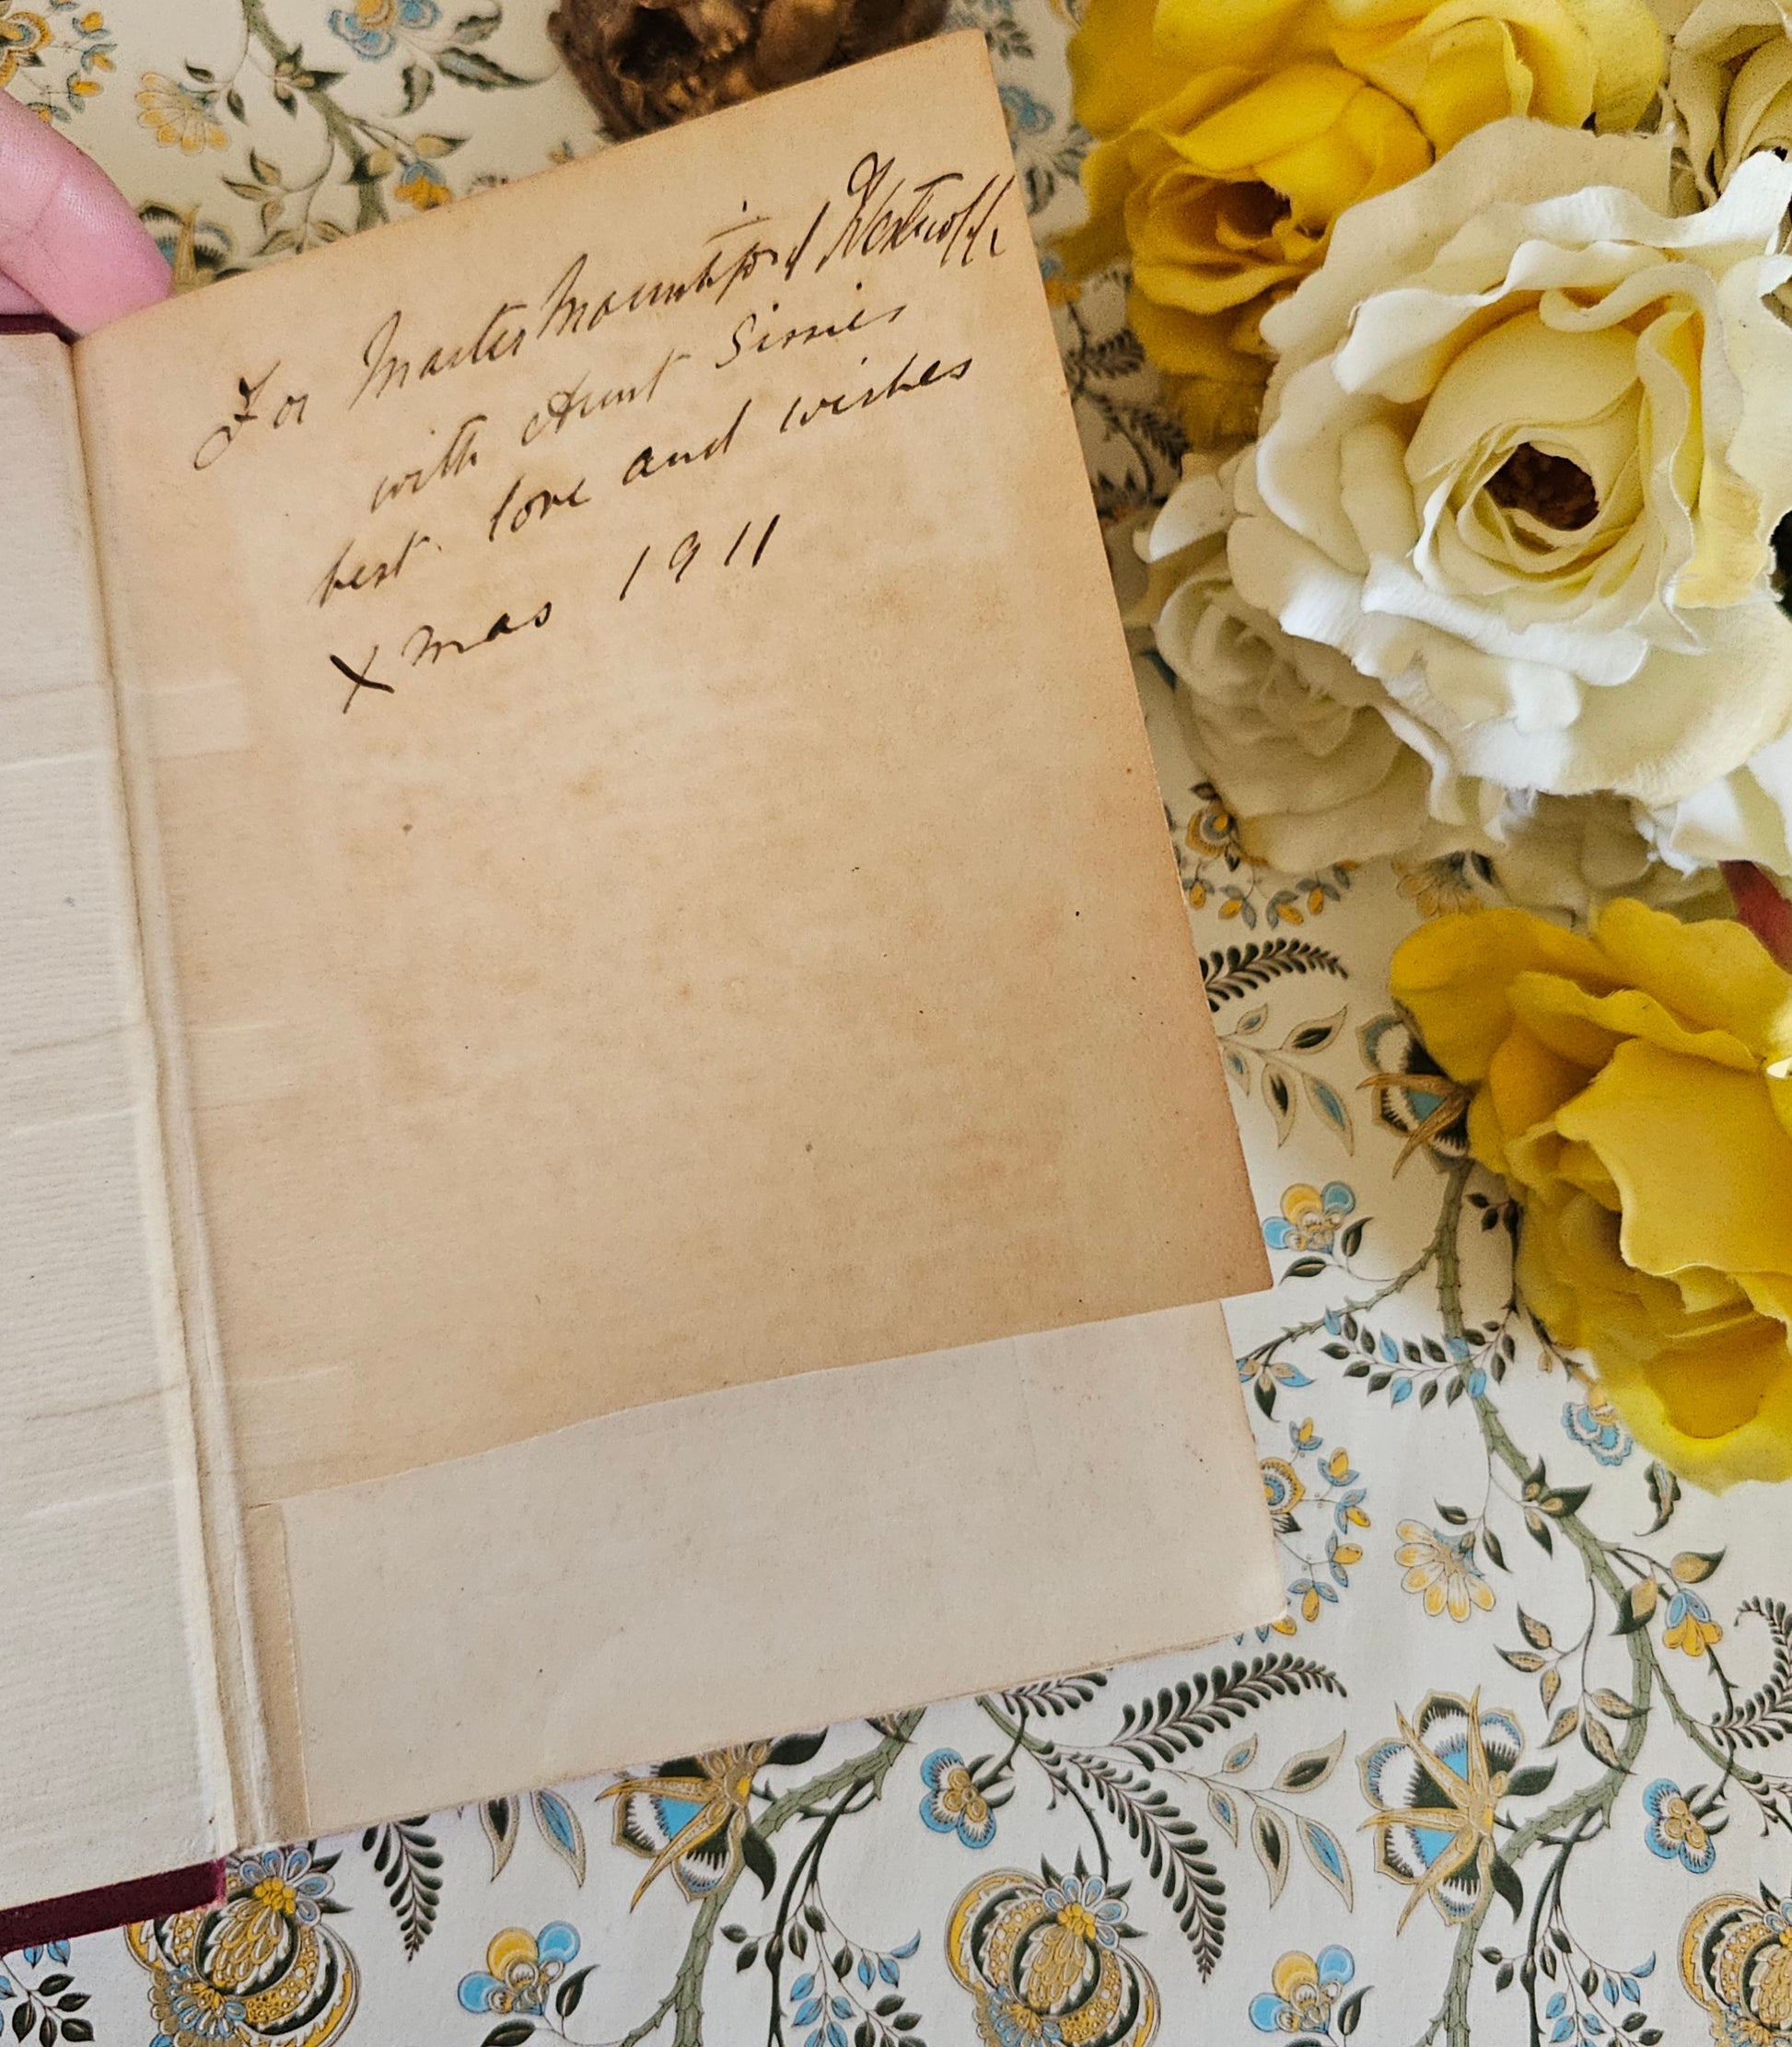 For Master Mountiford
with Aunt Sissies
best love and wishes
Xmas 1911